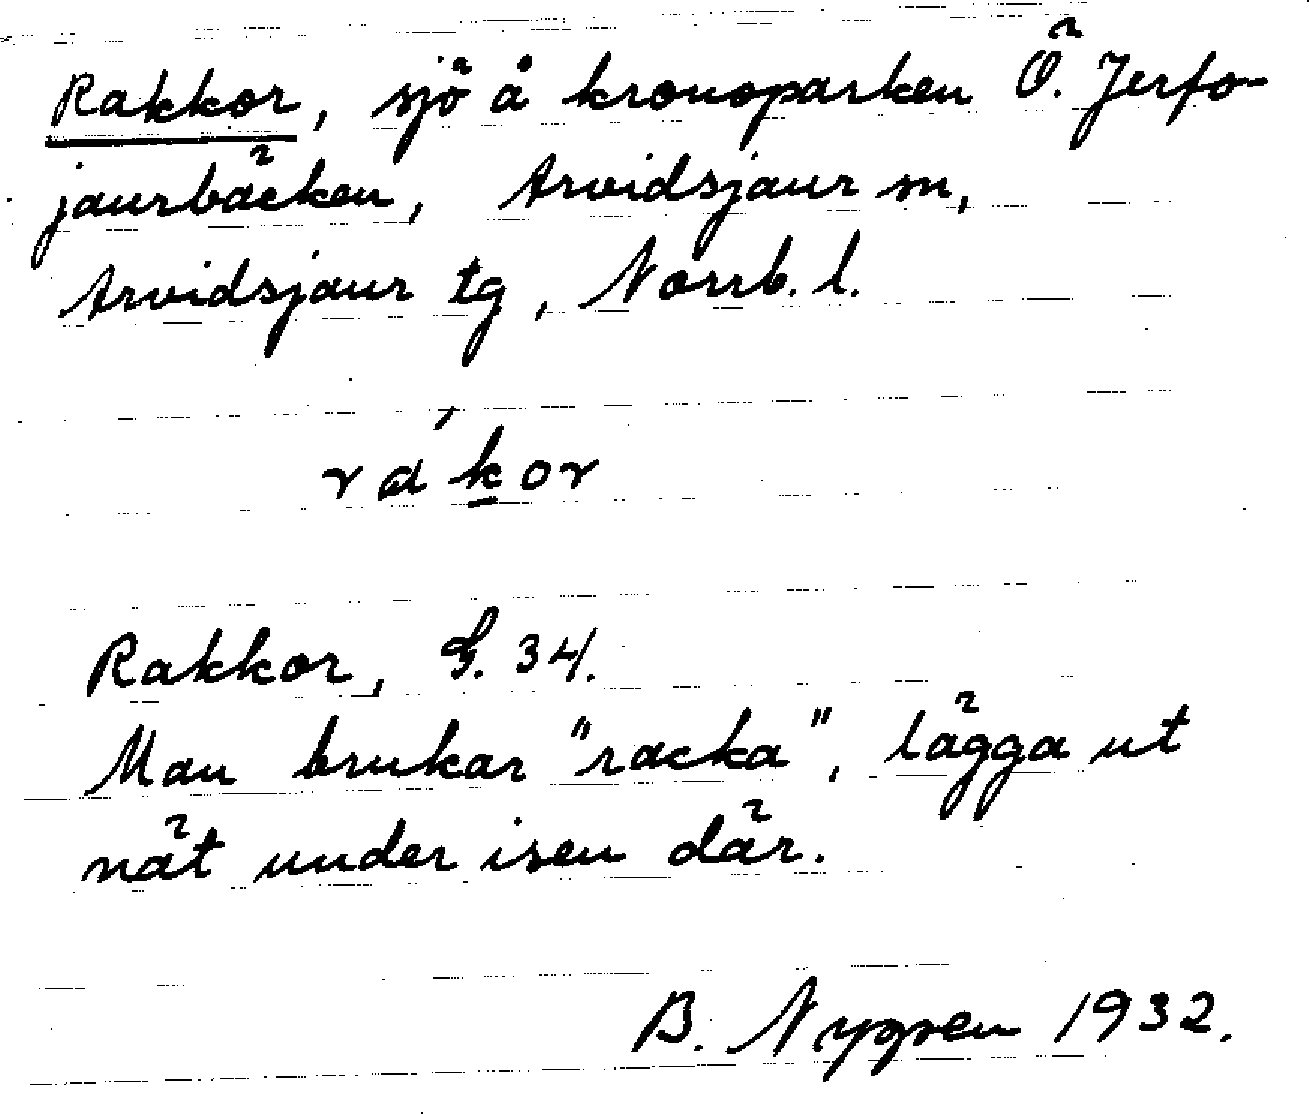 Rakkor, sjö å kronoparken Ö. Jerfo-
jaurbäcken, Arvidsjaur sn,
Arvidsjaur tg, Norrb. l.
rákor
Rakkor, G. 34.
Man brukar "racka", lägga ut
nät under isen där.
B. Nygren 1932.